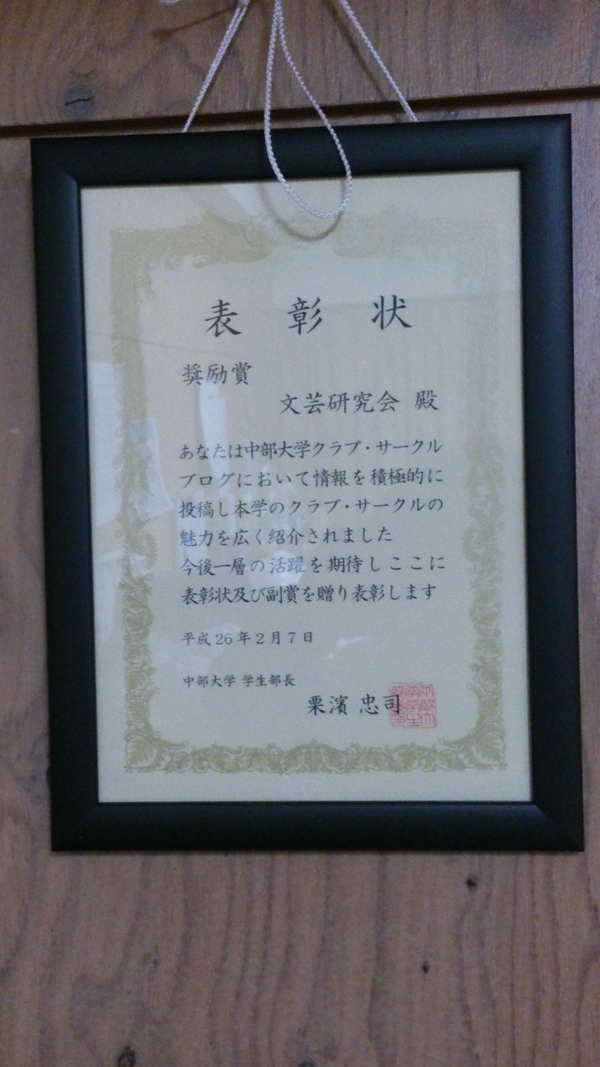 表彰状
奨励賞
文芸研究会 殿
あなたは中部大学クラブ・サークル
ブログにおいて情報を積極的に
投稿し本学のクラブ・サークルの
魅力を広く紹介されました
今後一層の活躍を期待しここに
表彰状及び副賞を贈り表彰します
平成26年2月7日
中部大学 学生部長
栗濱 忠司